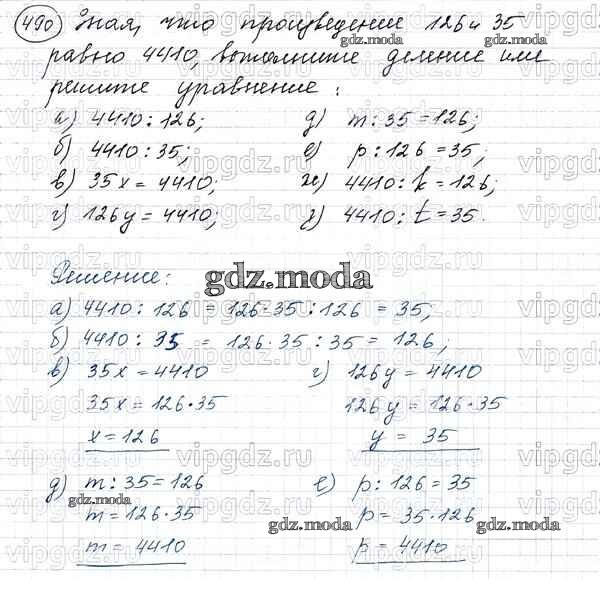 490 Зная, что произведение 126 и 35
равно 4410, выполните деление или
решите уравнение:
а) 4410 : 126; д) m : 35 = 126;
б) 4410 : 35; е) p : 126 = 35;
в) 35x = 4410; ж) 4410 : k = 126;
г) 126y = 4410; з) 4410 : t = 35.
Решение:
gdz.moda
а) 4410 : 126 = 126·35 : 126 = 35;
б) 4410 : 35 = 126·35 : 35 = 126;
в) 35x = 4410 г) 126y = 4410
35x = 126·35 126y = 126·35
x = 126 y = 35
д) m : 35 = 126 е) p : 126 = 35
m = 126·35 p = 35·126
m = 4410 p = 4410
gdz.moda
gdz.moda
vipgdz.ru